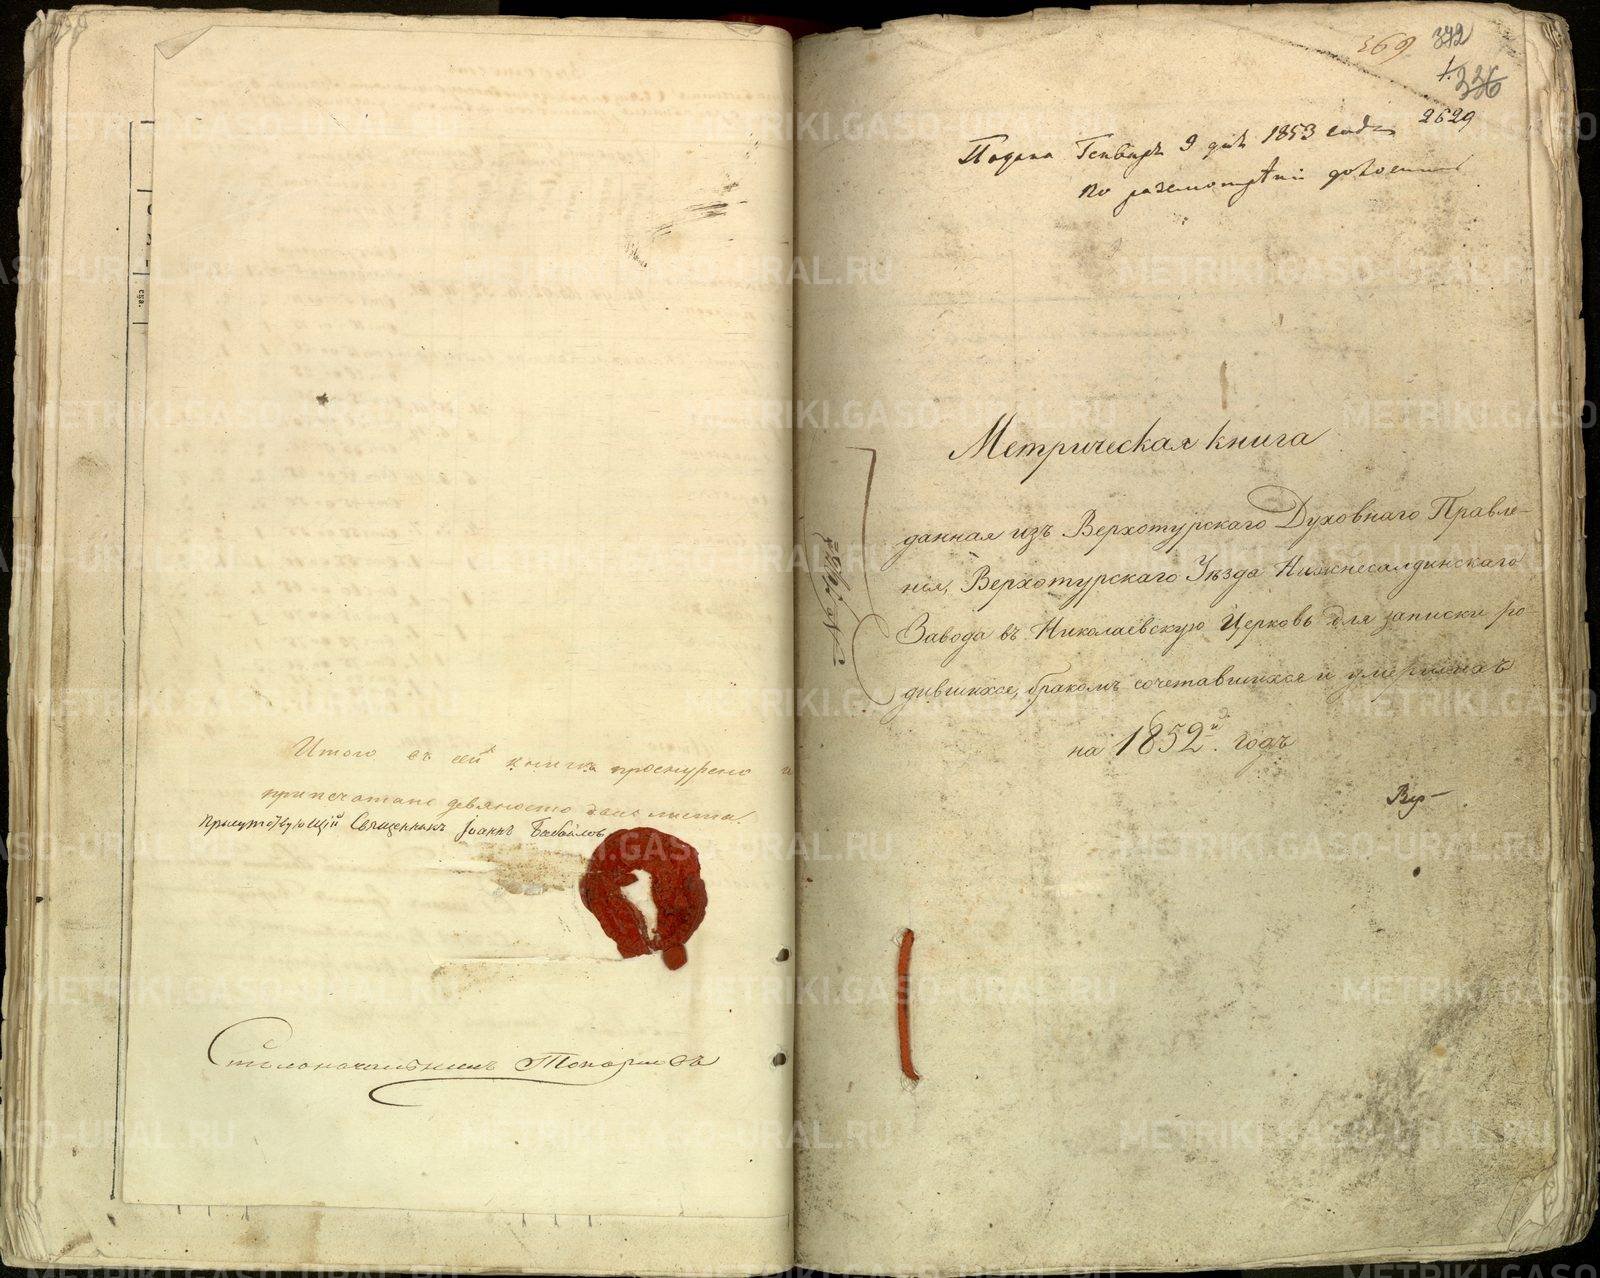 Итого въ сей книгѣ прошнурено и
припечатано девяносто два листа.
Присутствующій Священникъ Іоаннъ
Столоначальникъ Топорковъ
369 392
336
2629
Подана Генваря 9 дня 1853 года
по разсмотрѣніи доложить
Метрическая книга
данная изъ Верхотурскаго Духовнаго Правле-
нія, Верхотурскаго Уѣзда Нижнесалдинскаго
Завода въ Николаевскую Церковь для записки ро-
дившихся, бракомъ сочетавшихся и умершихъ
на 1852й. годъ
METRIKI.GASO-URAL.RU